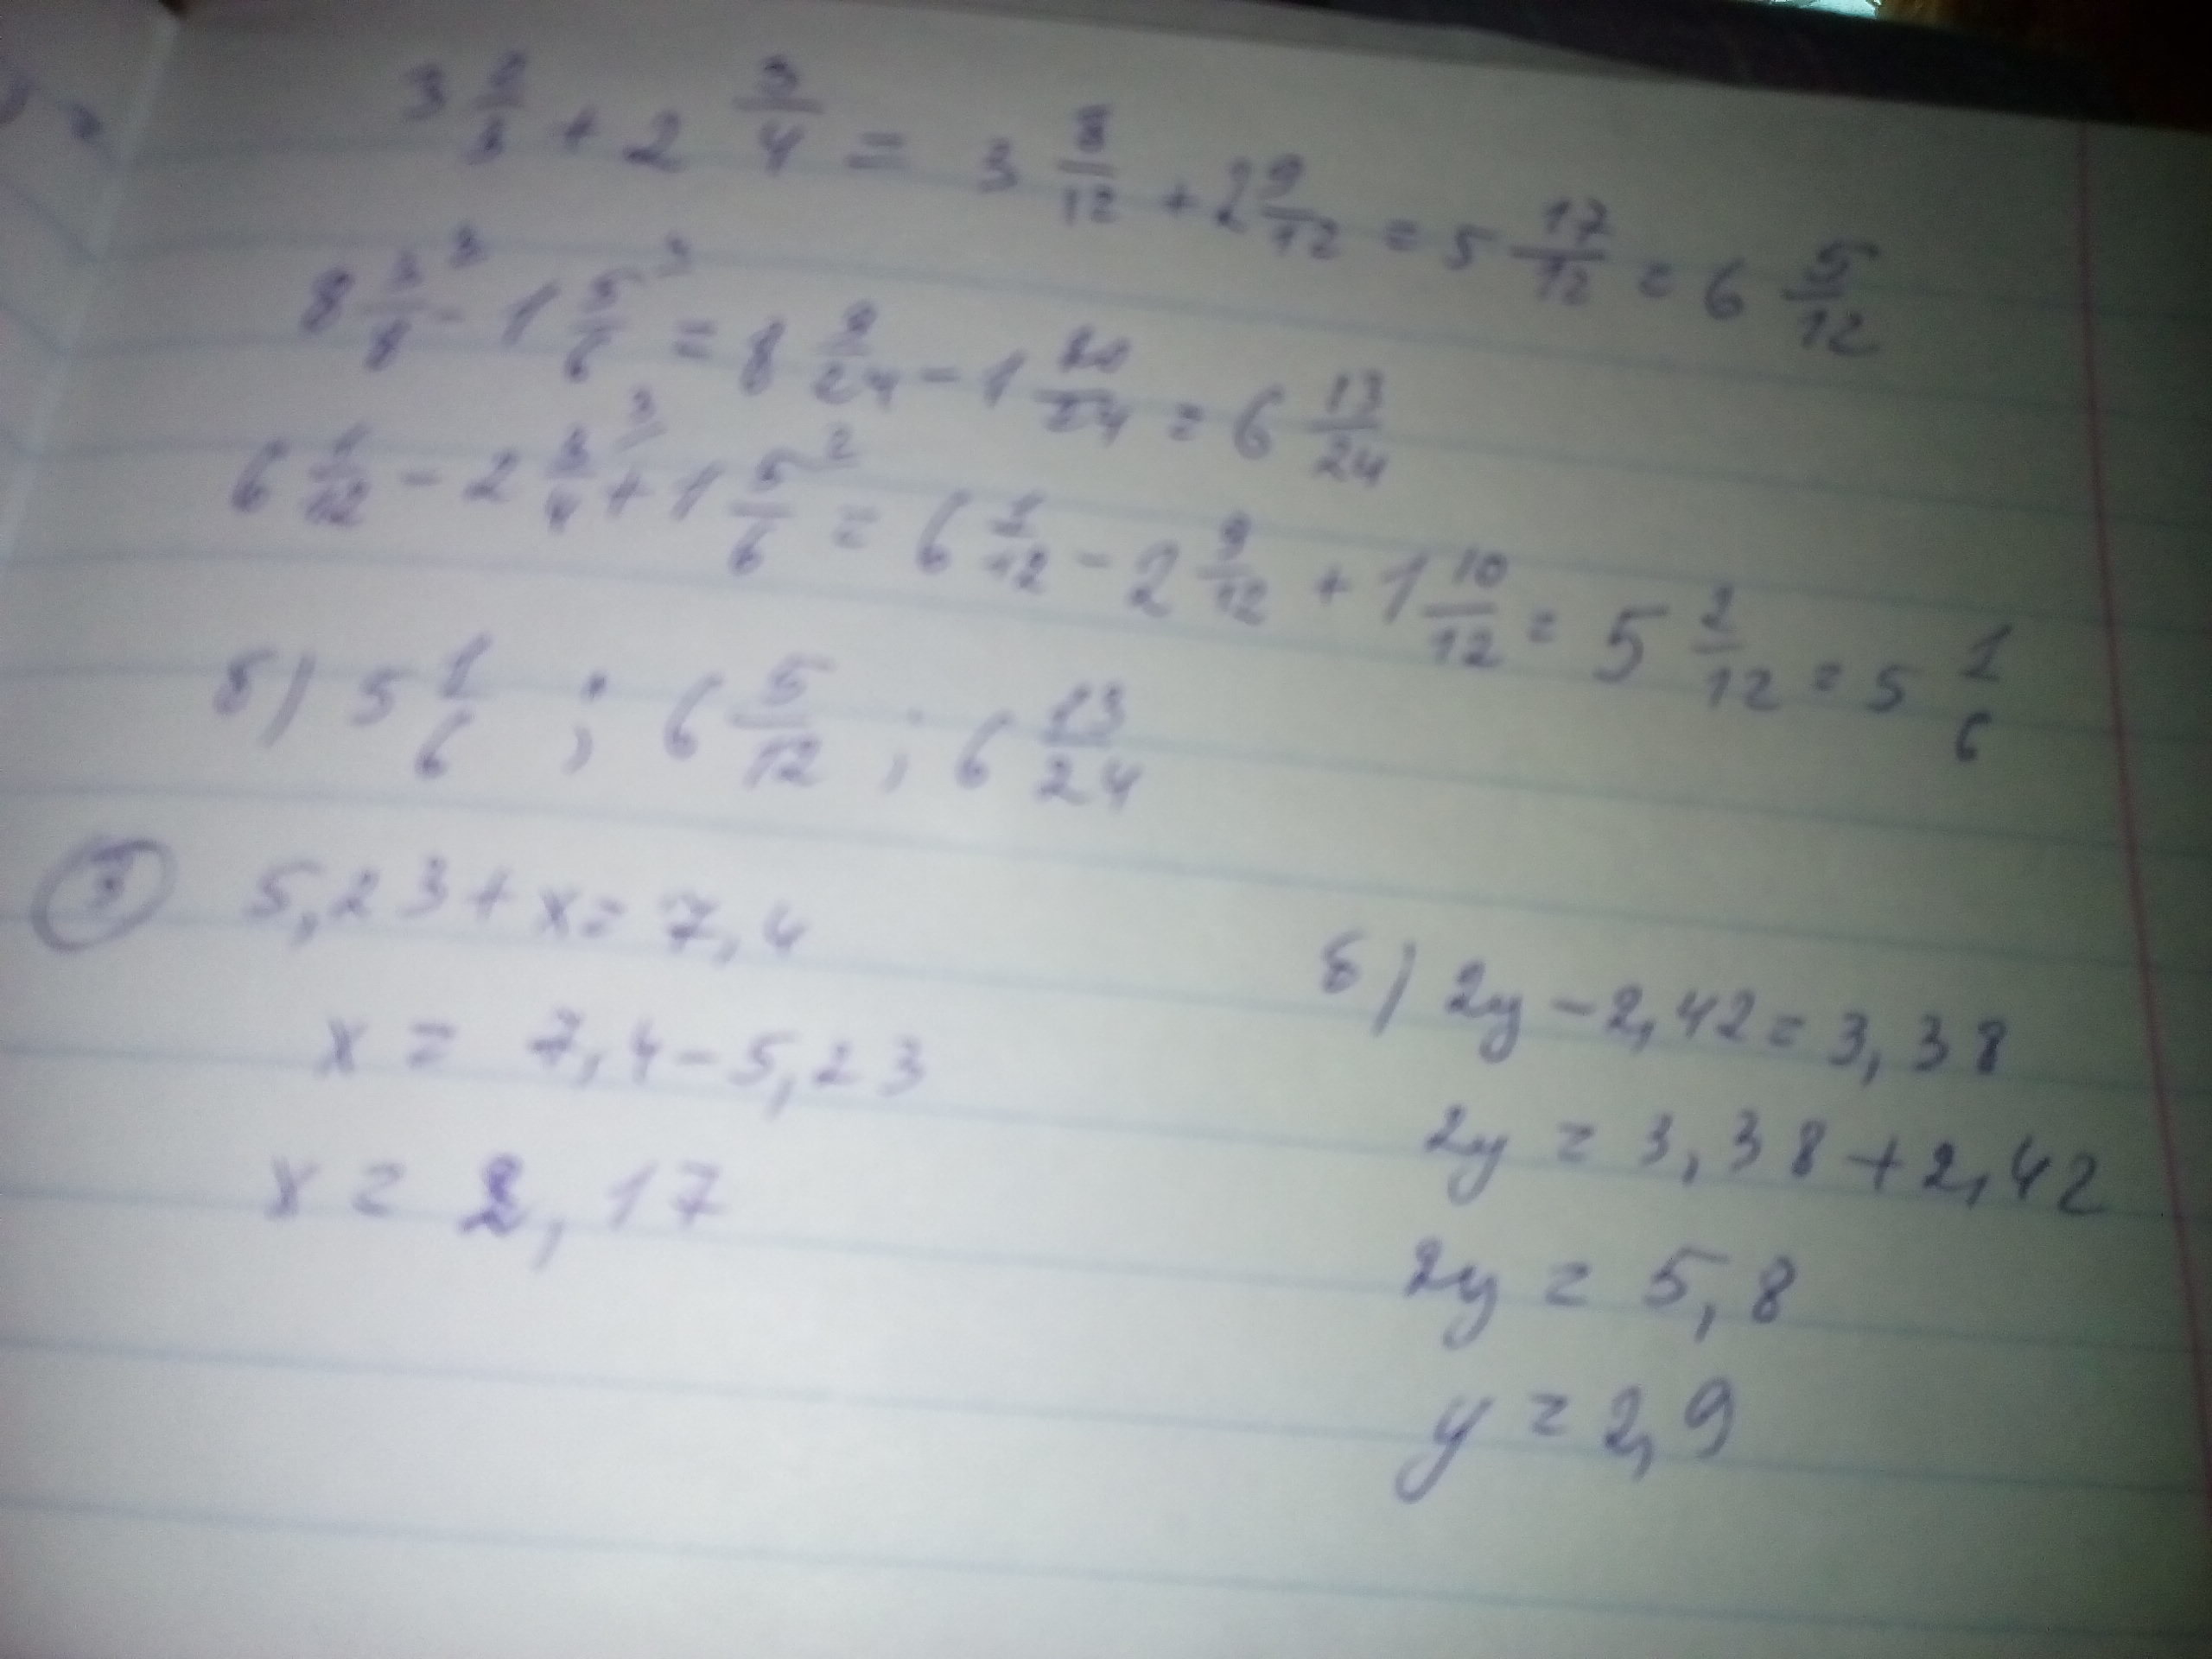 3 2/3 + 2 3/4 = 3 8/12 + 2 9/12 = 5 17/12 = 6 5/12
8 3/8 ³ - 1 5/6 ⁴ = 8 9/24 - 1 20/24 = 6 13/24
6 1/12 - 2 3/4 ³ + 1 5/6 ² = 6 1/12 - 2 9/12 + 1 10/12 = 5 2/12 = 5 1/6
б) 5 1/6 ; 6 5/12 ; 6 13/24
5,23 + x = 7,4
x = 7,4 - 5,23
x = 2,17
б) 2y - 2,42 = 3,38
2y = 3,38 + 2,42
2y = 5,8
y = 2,9